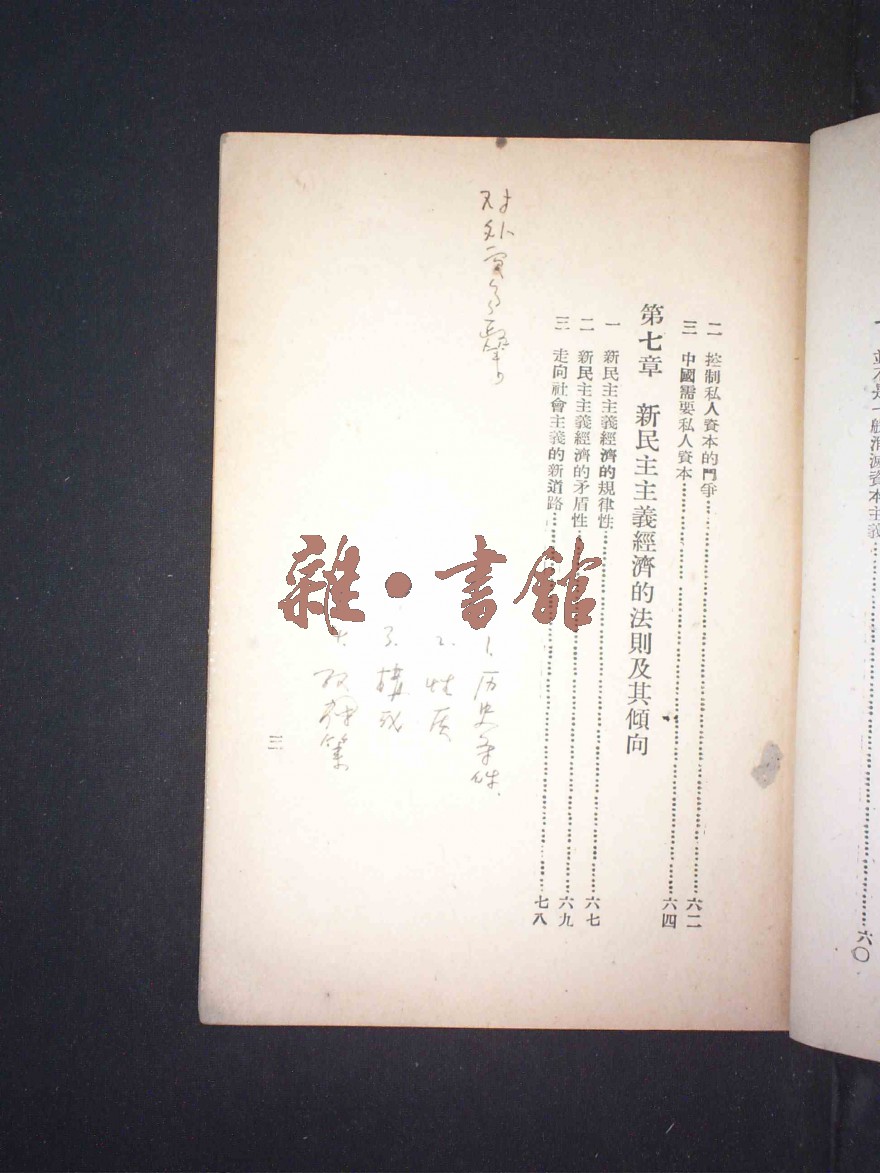 一 並不是一般消滅資本主義……六〇
二 控制私人資本的鬥爭……六二
三 中國需要私人資本……六四
第七章 新民主主義經濟的法則及其傾向
一 新民主主義經濟的規律性……六七
二 新民主主義經濟的矛盾性……六九
三 走向社會主義的新道路……七八
对外貿易
1、历史条件.
2、性质
3、構成
政策
三
雜·書館